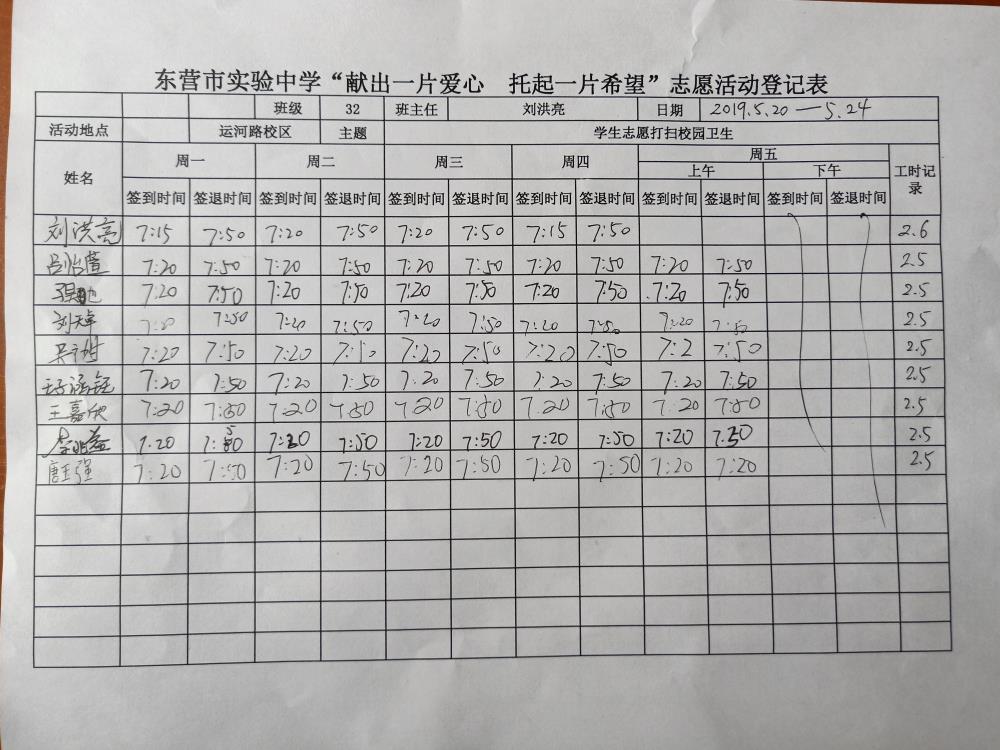 东营市实验中学“献出一片爱心 托起一片希望”志愿活动登记表
班级 32 班主任 刘洪亮 日期 2019.5.20—5.24
活动地点 运河路校区 主题 学生志愿打扫校园卫生
姓名 周一 周二 周三 周四 周五 工时记录
上午 下午
签到时间 签退时间 签到时间 签退时间 签到时间 签退时间 签到时间 签退时间 签到时间 签退时间 签到时间 签退时间
刘洪亮 7:15 7:50 7:20 7:50 7:20 7:50 7:15 7:50 2.6
7:20 7:50 7:20 7:50 7:20 7:50 7:20 7:50 7:20 7:50 2.5
7:20 7:50 7:20 7:50 7:20 7:50 7:20 7:50 7:20 7:50 2.5
7:20 7:50 7:20 7:50 7:20 7:50 7:20 7:50 7:20 7:50 2.5
7:20 7:50 7:20 7:50 7:20 7:50 7:20 7:50 7:2 7:50 2.5
7:20 7:50 7:20 7:50 7:20 7:50 7:20 7:50 7:20 7:50 2.5
王嘉欣 7:20 7:50 7:20 7:50 7:20 7:50 7:20 7:50 7:20 7:50 2.5
7:20 7:50 7:20 7:50 7:20 7:50 7:20 7:50 7:20 7:50 2.5
7:20 7:50 7:20 7:50 7:20 7:50 7:20 7:50 7:20 7:20 2.5